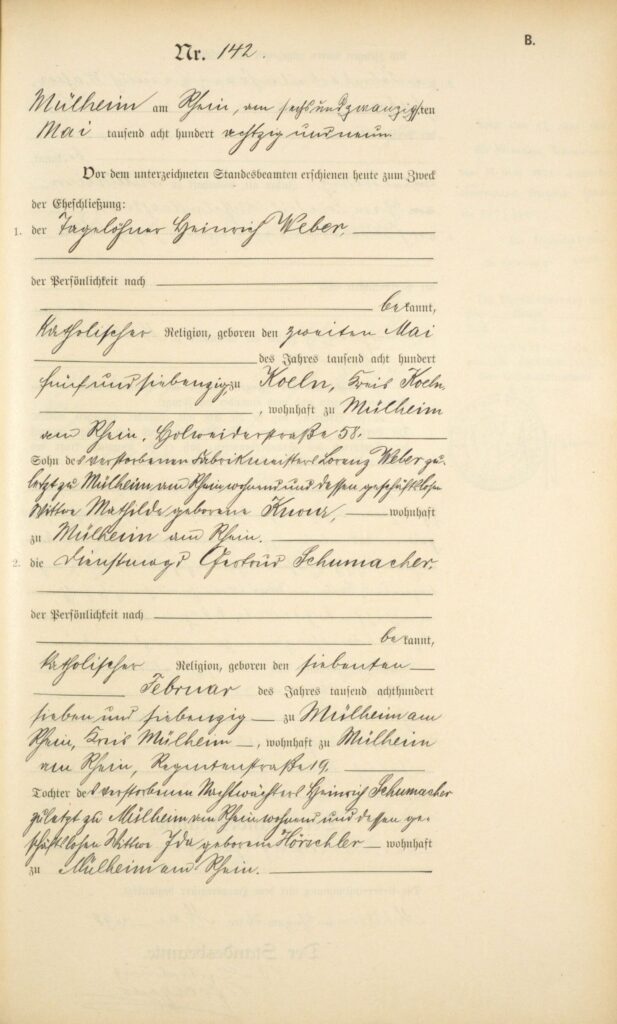 B.
Nr. 142.
Mülheim am Rhein, am sechsundzwanzigsten
Mai tausend acht hundert achtzig und neun
Vor dem unterzeichneten Standesbeamten erschienen heute zum Zweck
der Eheschließung:
1. der Tagelöhner Heinrich Weber,
der Persönlichkeit nach
bekannt,
katholischer Religion, geboren den zweiten Mai
des Jahres tausend acht hundert
fünf und siebenzig zu Koeln, Kreis Koeln,
, wohnhaft zu Mülheim
am Rhein, Holweiderstraße 58.
Sohn des verstorbenen Fabrikmeisters Lorenz Weber zu-
letzt zu Mülheim am Rhein wohnend und dessen geschäftslosen
Wittwe Mathilde geborene wohnhaft
zu Mülheim am Rhein.
2. die Dienstmagd Gertrud Schumacher,
der Persönlichkeit nach
bekannt,
katholischer Religion, geboren den siebenten
Februar des Jahres tausend achthundert
sieben und siebenzig zu Mülheim am
Rhein, Kreis Mülheim, wohnhaft zu Mülheim
am Rhein, Regentenstraße 19.
Tochter des verstorbenen Nachtwächters Heinrich Schumacher
zuletzt zu Mülheim am Rhein wohnend und dessen ge-
schäftslosen Wittwe Ida geborene wohnhaft
zu Mülheim am Rhein.